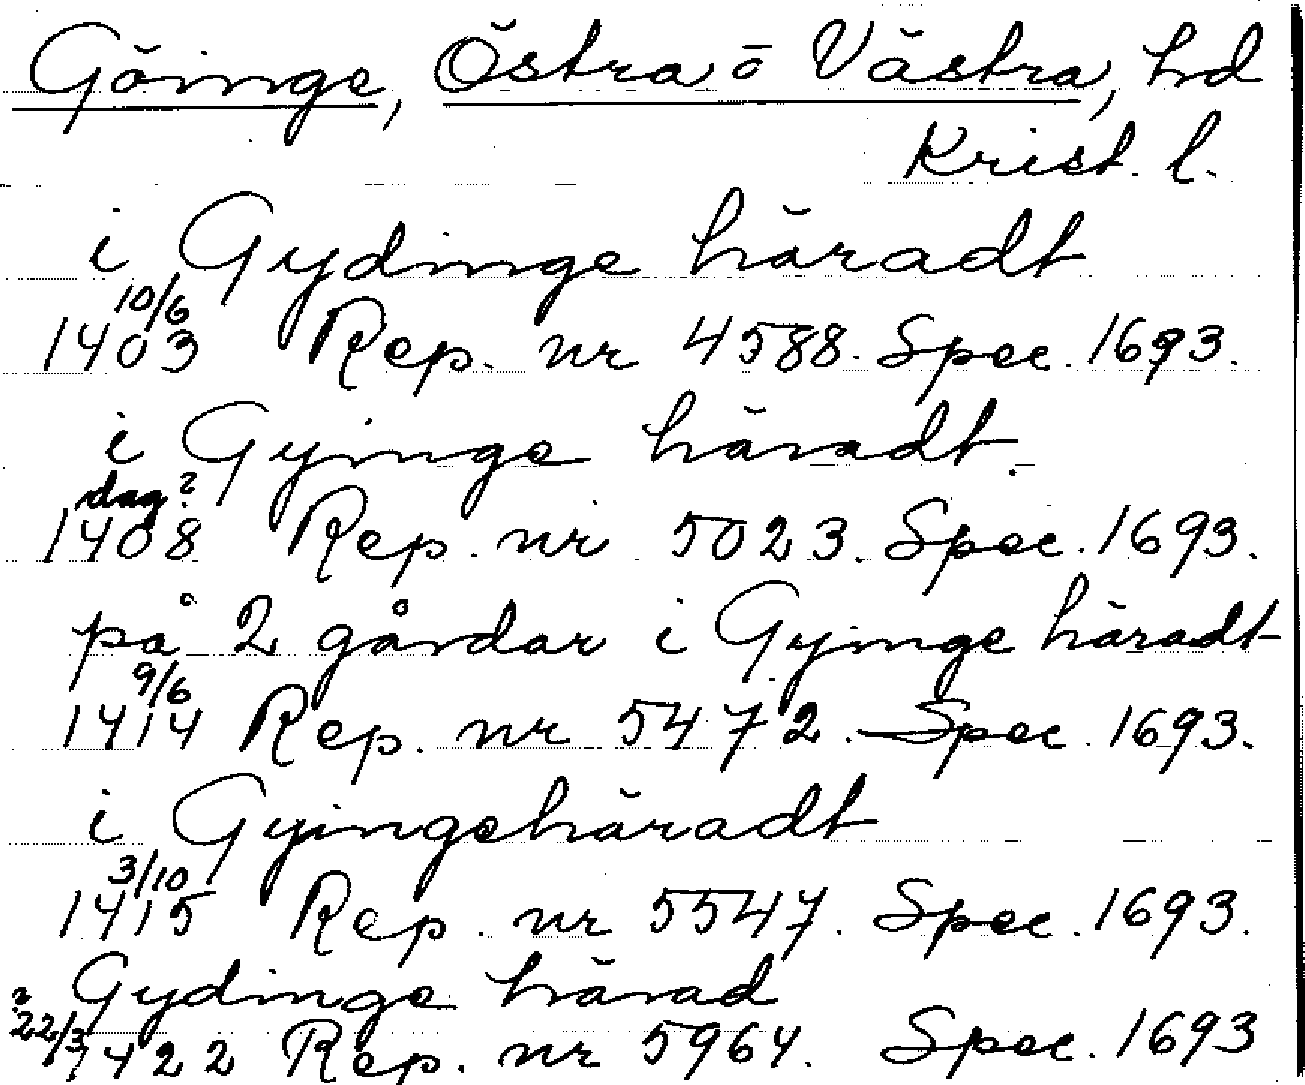 Göinge, Östra o Västra, hd
Krist. l.
i Gydinge häradt
10/6
1403 Rep. nr 4588. Spec. 1693.
i Gyinge häradt.
dag?
1408 Rep. nr 5023. Spec. 1693.
på 2 gårdar i Gyinge häradt
9/6
1414 Rep. nr 5472. Spec. 1693.
i Gyingehäradt
3/10
1415 Rep. nr 5547. Spec. 1693.
Gydinge härad
? 22/3
1422 Rep. nr 5964. Spec. 1693